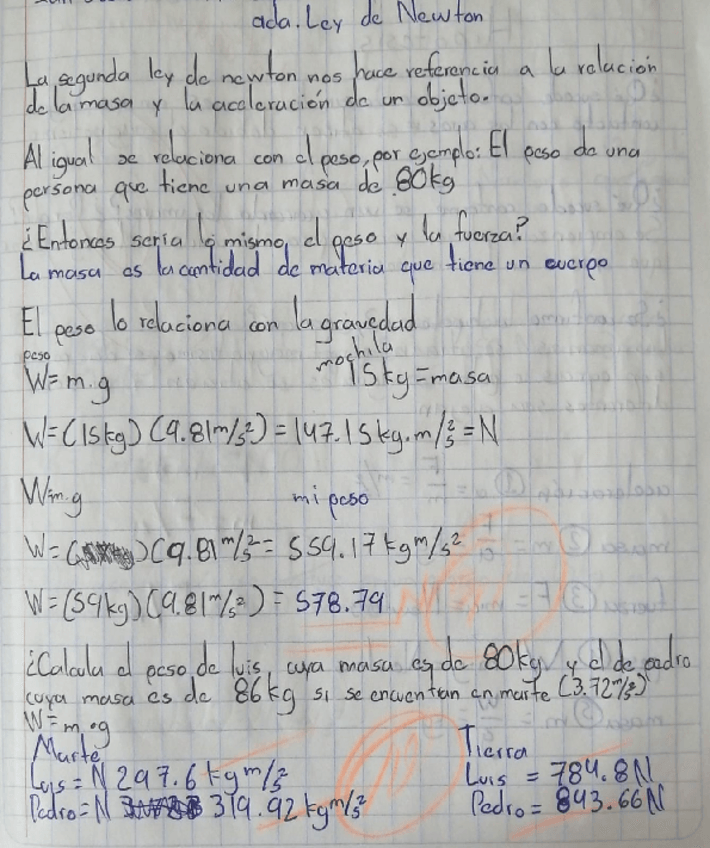 ada. Ley de Newton
La segunda ley de newton nos hace referencia a la relación
de la masa y la aceleración de un objeto.
Al igual se relaciona con el peso, por ejemplo: El peso de una
persona que tiene una masa de 80kg
¿Entonces seria lo mismo, el peso y la fuerza?
La masa es la cantidad de materia que tiene un cuerpo
El peso lo relaciona con la gravedad
peso
W=m.g
mochila
15kg=masa
W=(15kg)(9.81m/s²)=147.15kg.m/s²=N
W=m.g mi peso
W=( )(9.81m/s²=559.17kgm/s²
W=(59kg)(9.81m/s²)=578.79
¿Calcula el peso de luis, cuya masa es de 80kg y el de pedro
cuya masa es de 86kg si se encuentran en marte (3.72m/s²)
W=m.g
Marte
Luis=N 297.6kgm/s²
Pedro=N 319.92kgm/s²
Tierra
Luis = 784.8N
Pedro= 843.66N